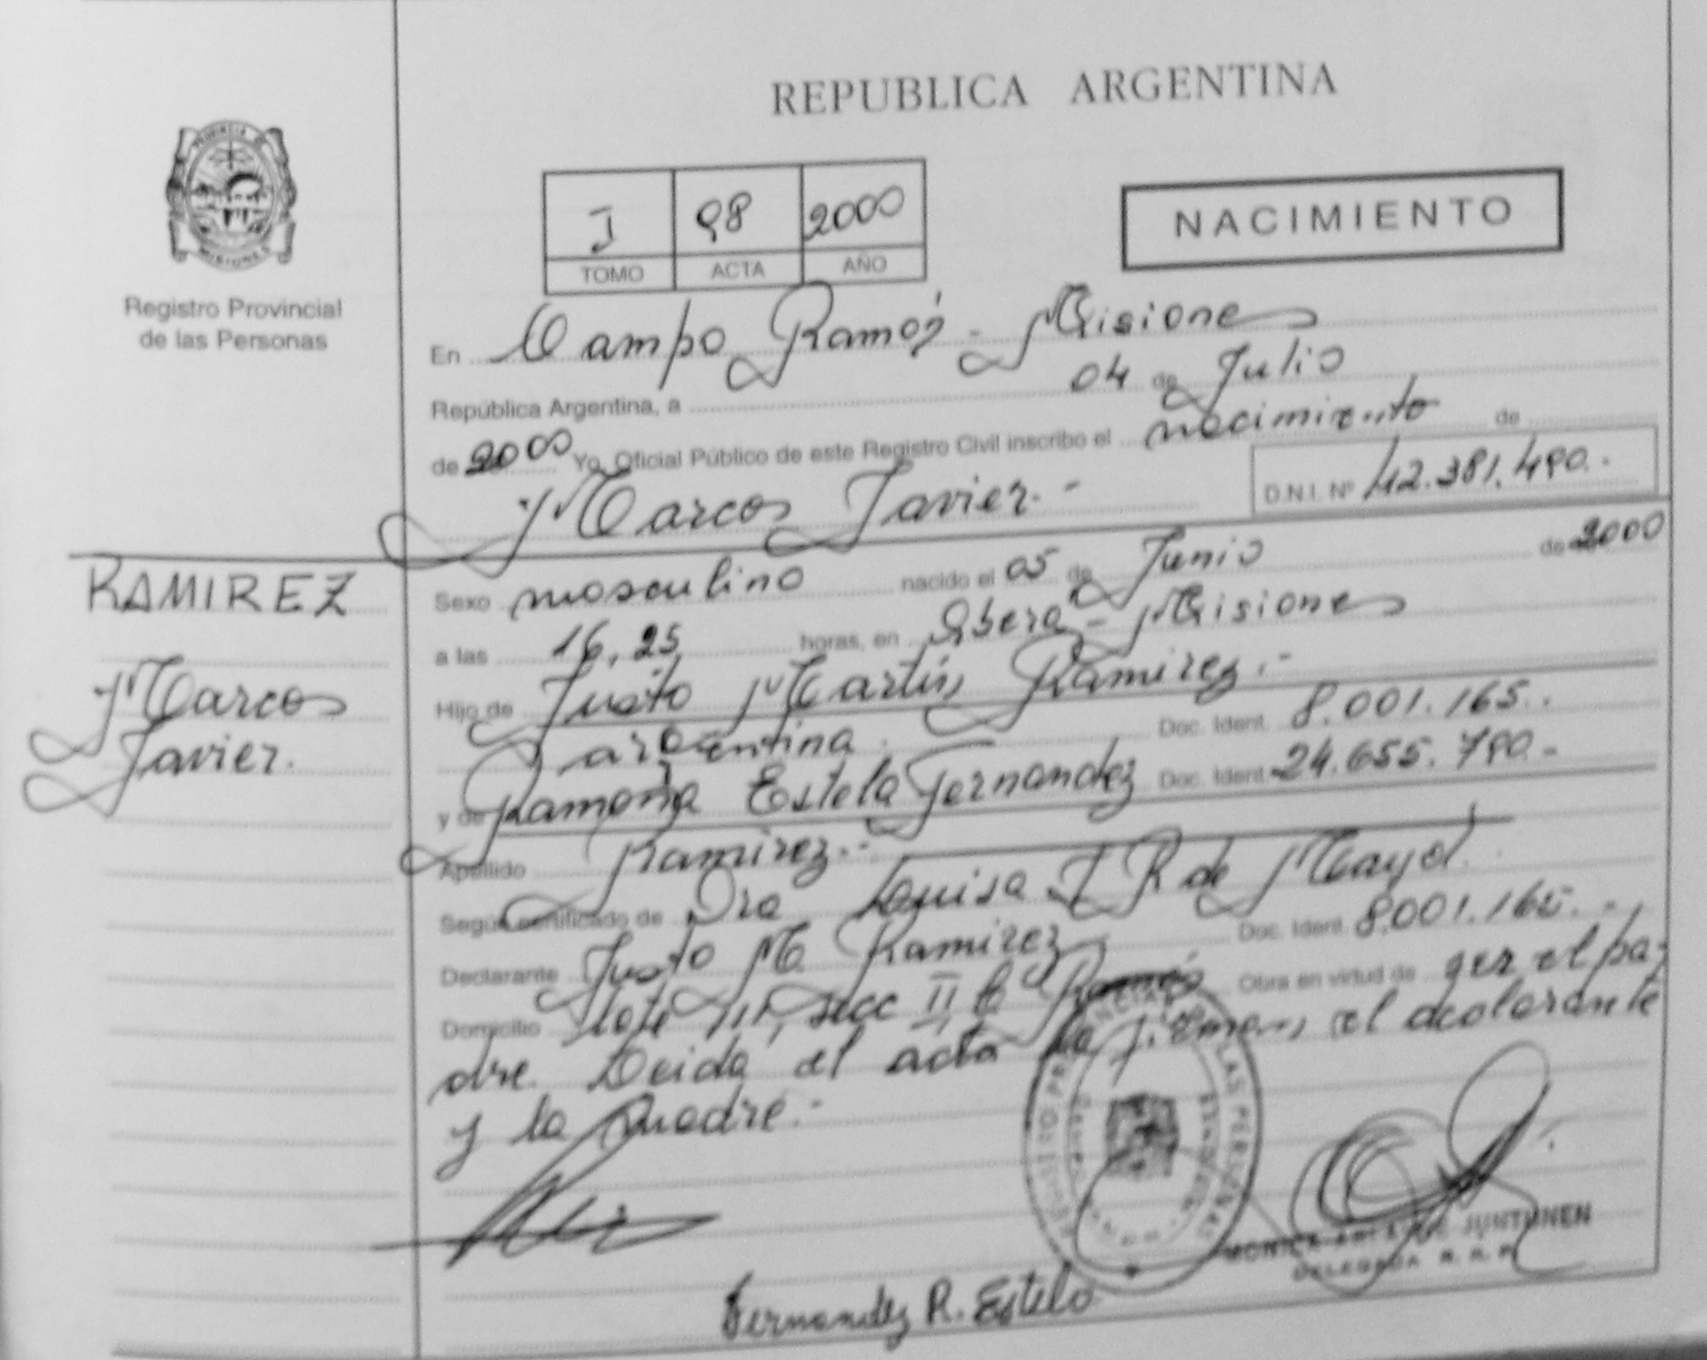 REPUBLICA ARGENTINA
PROVINCIA DE
MISIONES
Registro Provincial
de las Personas
I 98 2000
TOMO ACTA AÑO
NACIMIENTO
En Campo Ramón - Misiones
República Argentina, a 04 de Julio
de 2000 Yo, Oficial Público de este Registro Civil inscribo el nacimiento de
Marcos Javier.- D.N.I. Nº 42.381.490.-
RAMIREZ
Marcos
Javier.
Sexo masculino nacido el 05 de Junio de 2000
a las 16,25 horas, en Oberá - Misiones
Hijo de Justo Martín Ramirez.-
argentina Doc. Ident. 8.001.165.
y de Ramona Estela Fernandez Doc. Ident. 24.655.790.-
Apellido Ramirez.-
Según certificado de Dra Luisa R de Mayol.
Declarante Justo M. Ramirez Doc. Ident. 8.001.165.-
Domicilio Lote 111, secc II Cº Ramón Obra en virtud de ser el pa-
dre. Leída el acta la firman, el declarante
y la Madre.-
REGISTRO PROVINCIAL DE LAS PERSONAS
MONICA JUNTUNEN
DELEGADA R.
Fernandez R. Estela